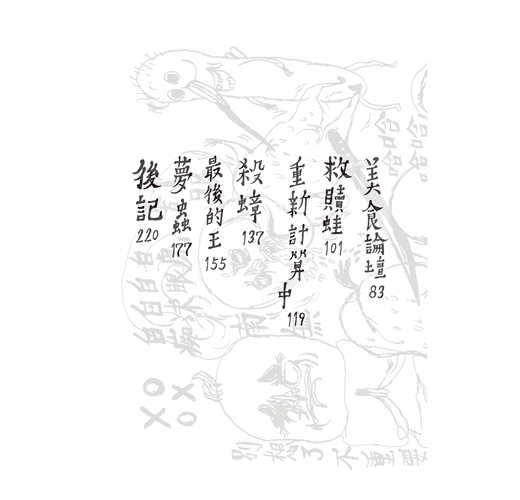 美食論壇 83
救贖蛙 101
重新計算中 119
殺蟑 137
最後的王 155
夢蟲 177
後記 220
哈哈
哈哈
別想了不重要